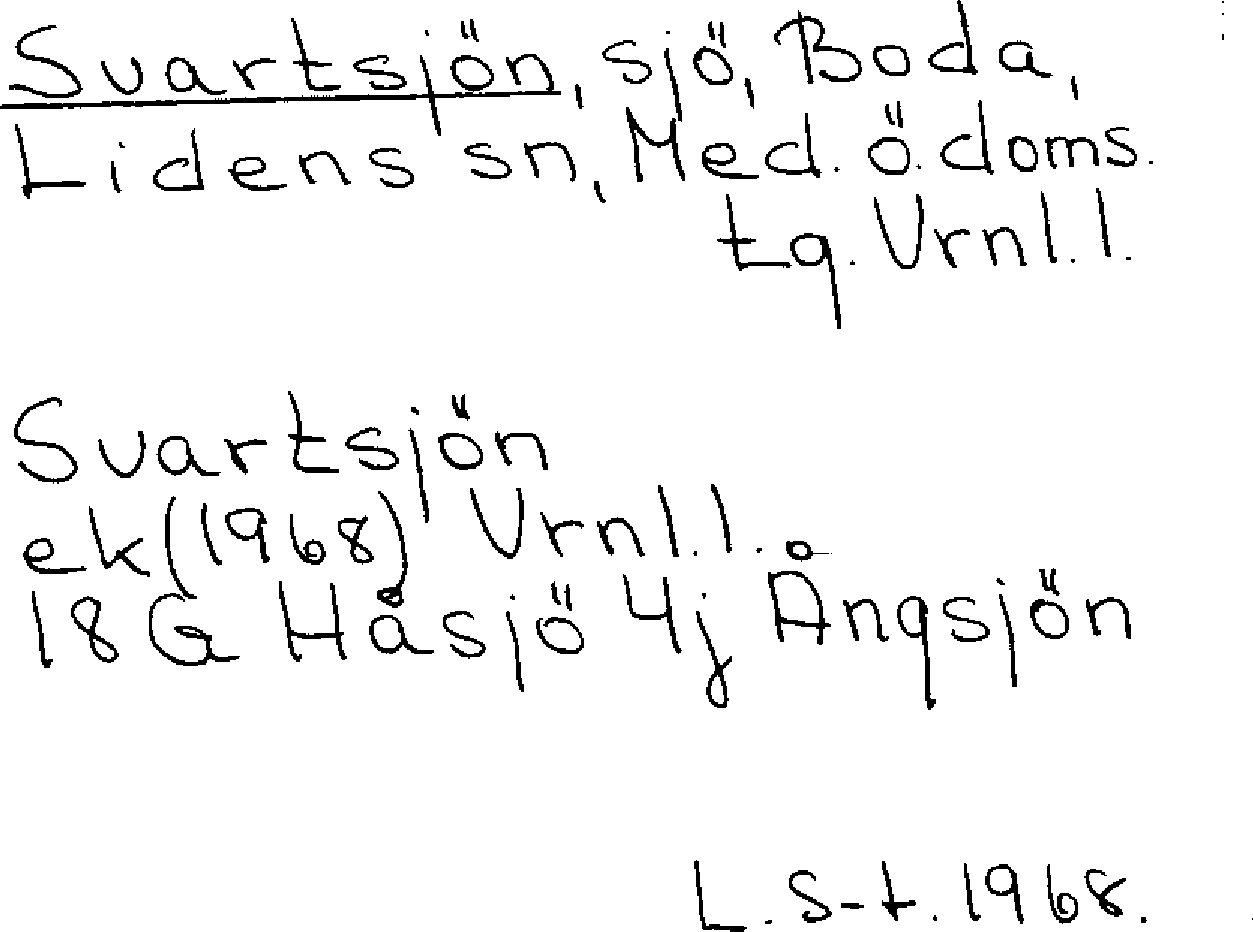 Svartsjön, sjö, Boda,
Lidens sn, Med. ö. doms.
tg. Vrnl.l.
Svartsjön
ek(1968) Vrnl.l.
18G Håsjö 4j Ångsjön
L. S-t. 1968.